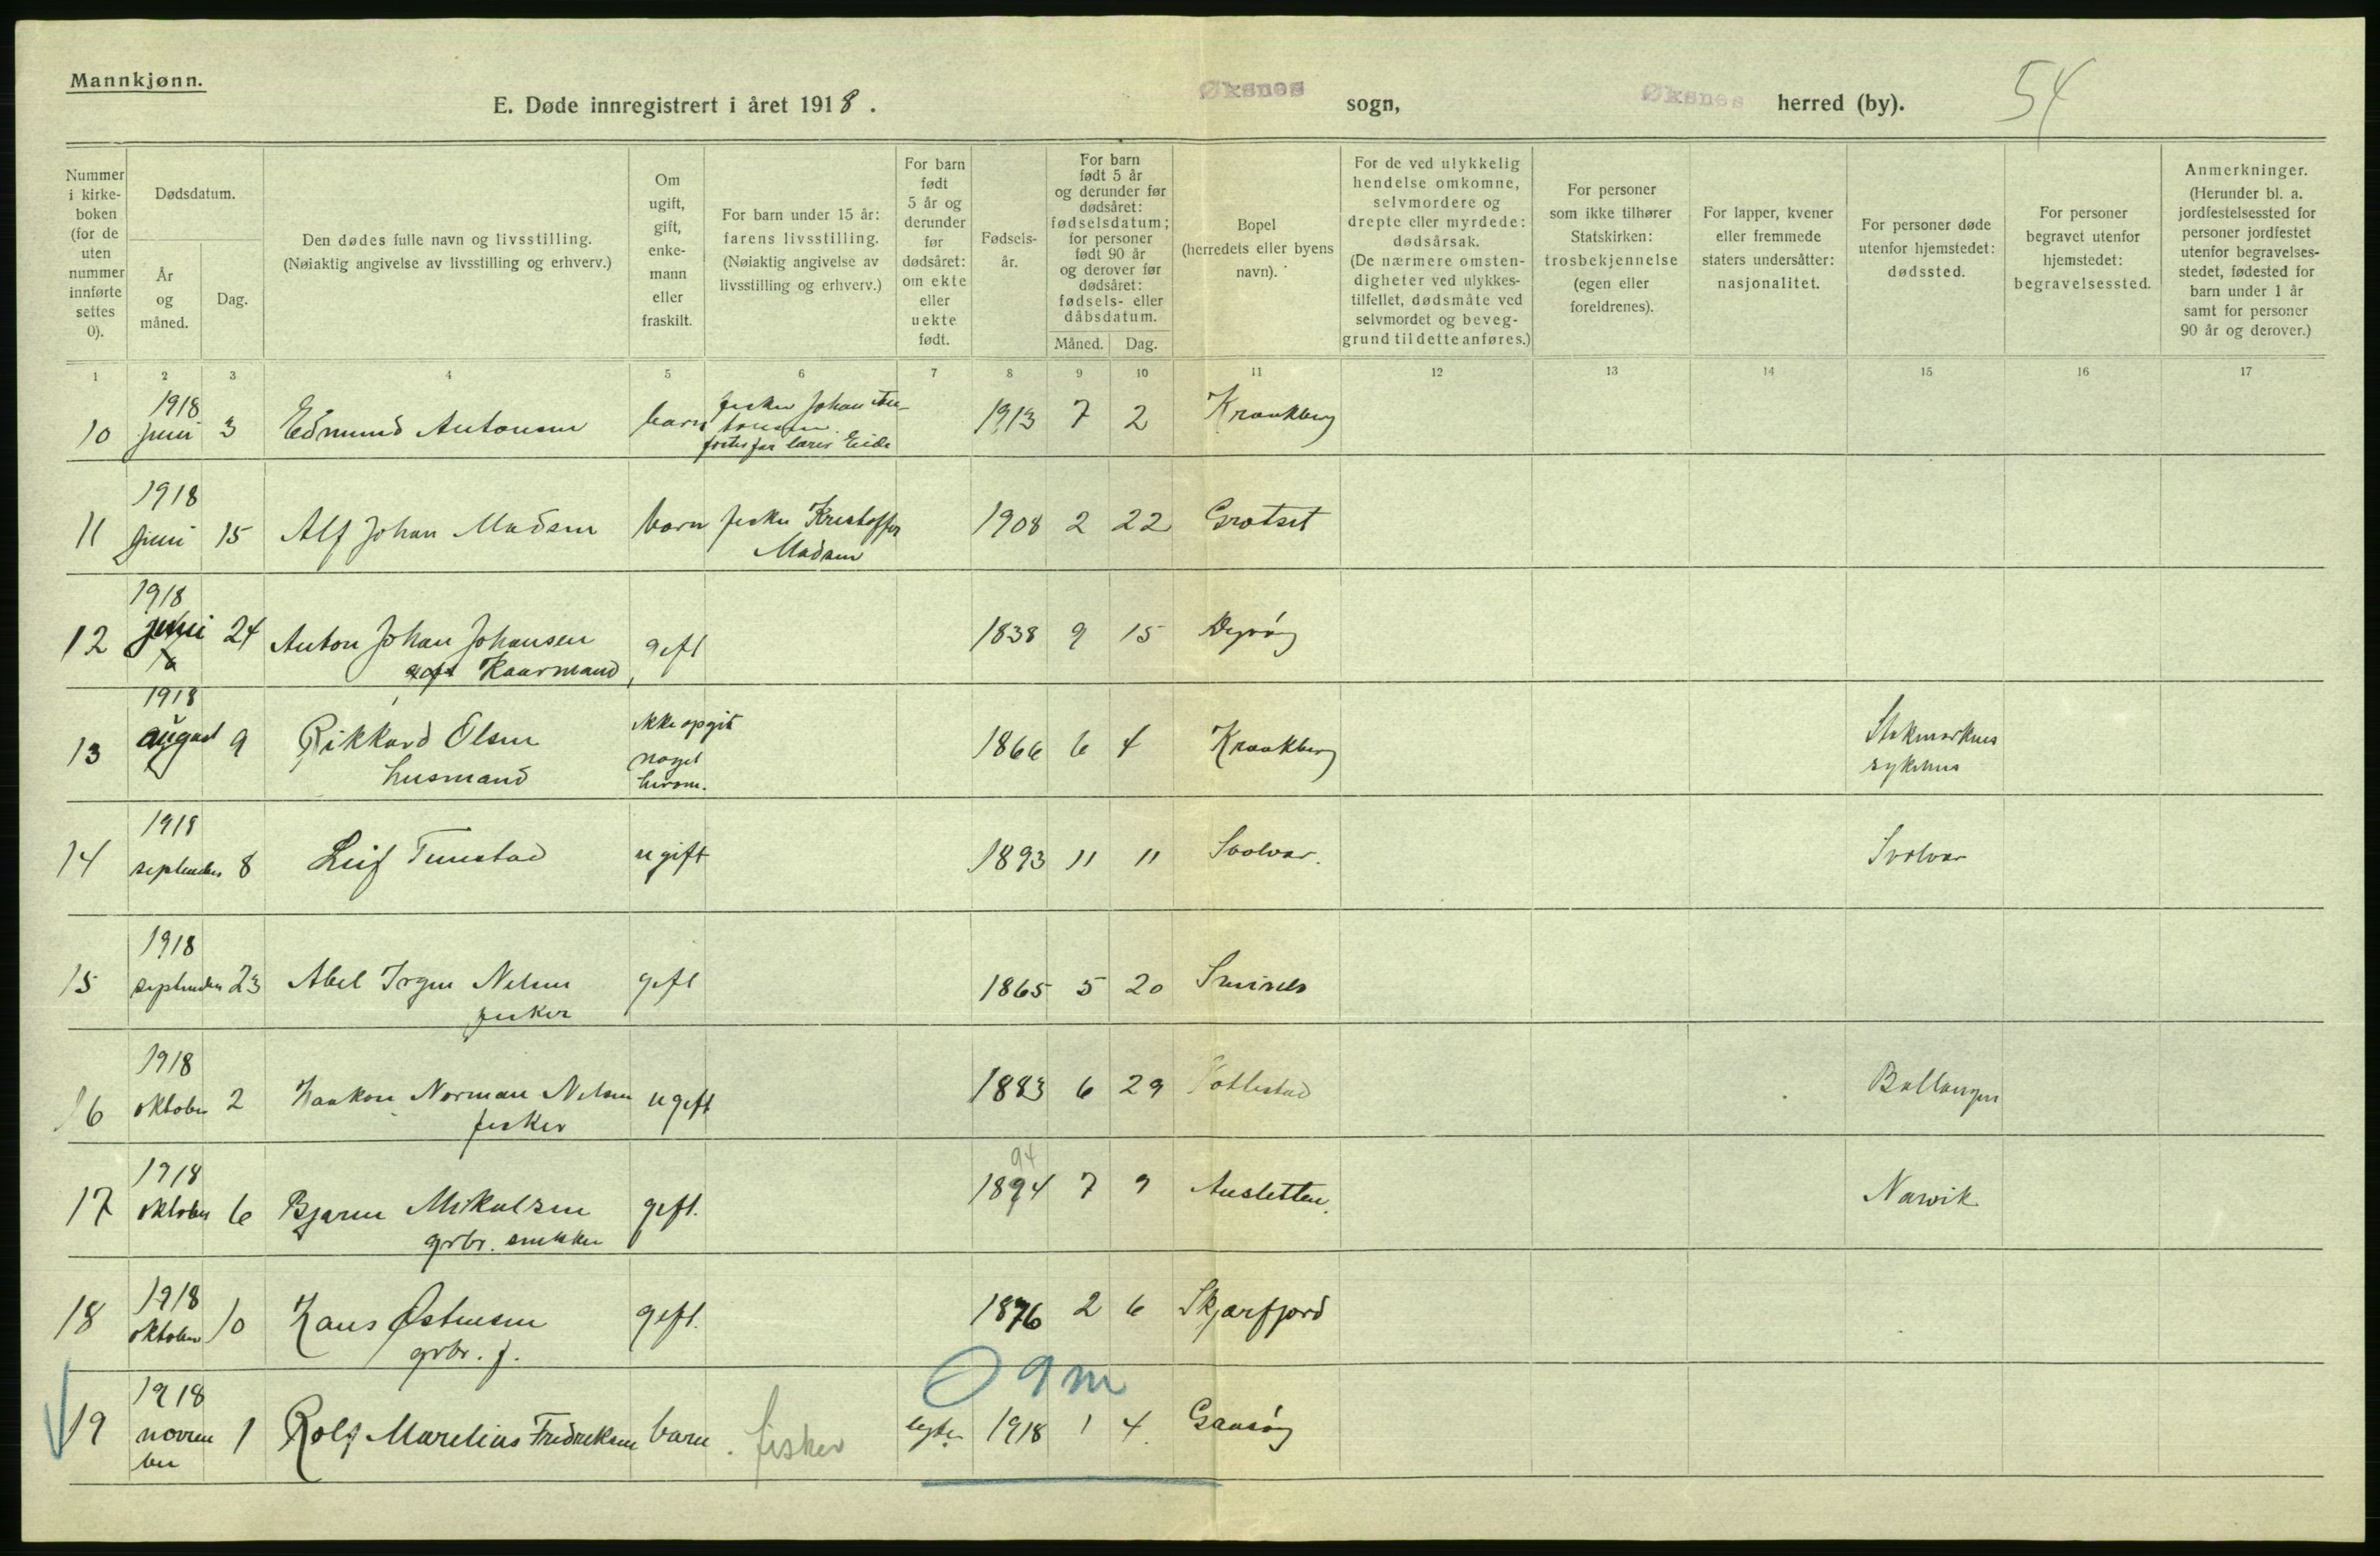 Mannkjønn.
E. Døde innregistrert i året 1918.
Øksnes sogn,
Øksnes herred (by).
54
Nummer i kirke-boken (for de uten nummer innførte settes 0).
Dødsdatum.
År og måned.
Dag.
Den dødes fulle navn og livsstilling.
(Nøiaktig angivelse av livsstilling og erhverv.)
Om ugift, gift, enke-mann eller fraskilt.
For barn under 15 år: farens livsstilling. (Nøiaktig angivelse av livsstilling og erhverv.)
For barn født 5 år og derunder før dødsåret: om ekte eller uekte født.
Fødsels-år.
For barn født 5 år og derunder før dødsåret: fødselsdatum; for personer født 90 år og derover før dødsåret: fødsels- eller dåbsdatum.
Måned.
Dag.
Bopel (herredets eller byens navn).
For de ved ulykkelig hendelse omkomne, selvmordere og drepte eller myrdede: dødsårsak. (De nærmere omsten-digheter ved ulykkes-tilfellet, dødsmåte ved selvmordet og beveg-grund til dette anføres.)
For personer som ikke tilhører Statskirken: trosbekjennelse (egen eller foreldrenes).
For lapper, kvener eller fremmede staters undersåtter: nasjonalitet.
For personer døde utenfor hjemstedet: dødssted.
For personer begravet utenfor hjemstedet: begravelsessted.
Anmerkninger. (Herunder bl. a. jordfestelsessted for personer jordfestet utenfor begravelses-stedet, fødested for barn under 1 år samt for personer 90 år og derover.)
1 2 3 4 5 6 7 8 9 10 11 12 13 14 15 16 17
10 1918 juni 3 Edmund Antonsen barn fisker Johan Antonsen fosterfar Eide 1913 7 2 Kraakberg
11 1918 juni 15 Alf Johan Madsen barn fisker Kristoffer Madsen 1908 2 22 Grotset
12 1918 juni 24 Anton Johan Johansen Kaarmand gift 1838 9 15 Dyrøy
13 1918 august 9 Rikkard Olsen husmand ikke opgit noget herom. 1866 6 4 Kraakberg Stokmarknes sykehus
14 1918 september 8 Leif Tunstad ugift 1893 11 11 Svolvær. Svolvær
15 1918 september 23 Abel Irgen Nilsen fisker gift 1865 5 20 Smines
16 1918 oktober 2 Haakon Norman Nilsen fisker ugift 1883 6 29 Ballangen
17 1918 oktober 6 Bjarne Mikalsen grbr. snekker gift. 1894 94 7 9 Aasletten. Narvik
18 1918 oktober 10 Hans Østensen grbr. f. gift. 1876 2 6 Skjærfjord
0 9 m
19 1918 november 1 Rolf Marelius Fredriksen barn fisker 1918 1 4 Gaasøy